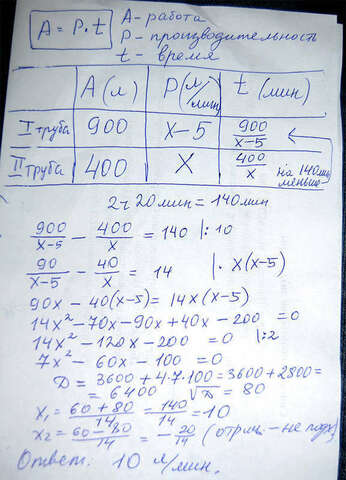 A = P·t
A - работа
P - производительность
t - время
A (л) P (л/мин) t (мин)
I труба 900 x-5 900/x-5
II труба 400 x 400/x на 140 мин меньше
2ч 20мин = 140мин
900/x-5 - 400/x = 140 |:10
90/x-5 - 40/x = 14 |· x(x-5)
90x - 40(x-5) = 14x(x-5)
14x² - 70x - 90x + 40x - 200 = 0
14x² - 120x - 200 = 0 |:2
7x² - 60x - 100 = 0
D = 3600 + 4·7·100 = 3600 + 2800 =
= 6400 √D = 80
x₁ = 60+80/14 = 140/14 = 10
x₂ = 60-80/14 = -20/14 (отриц. - не подх)
Ответ. 10 л/мин.